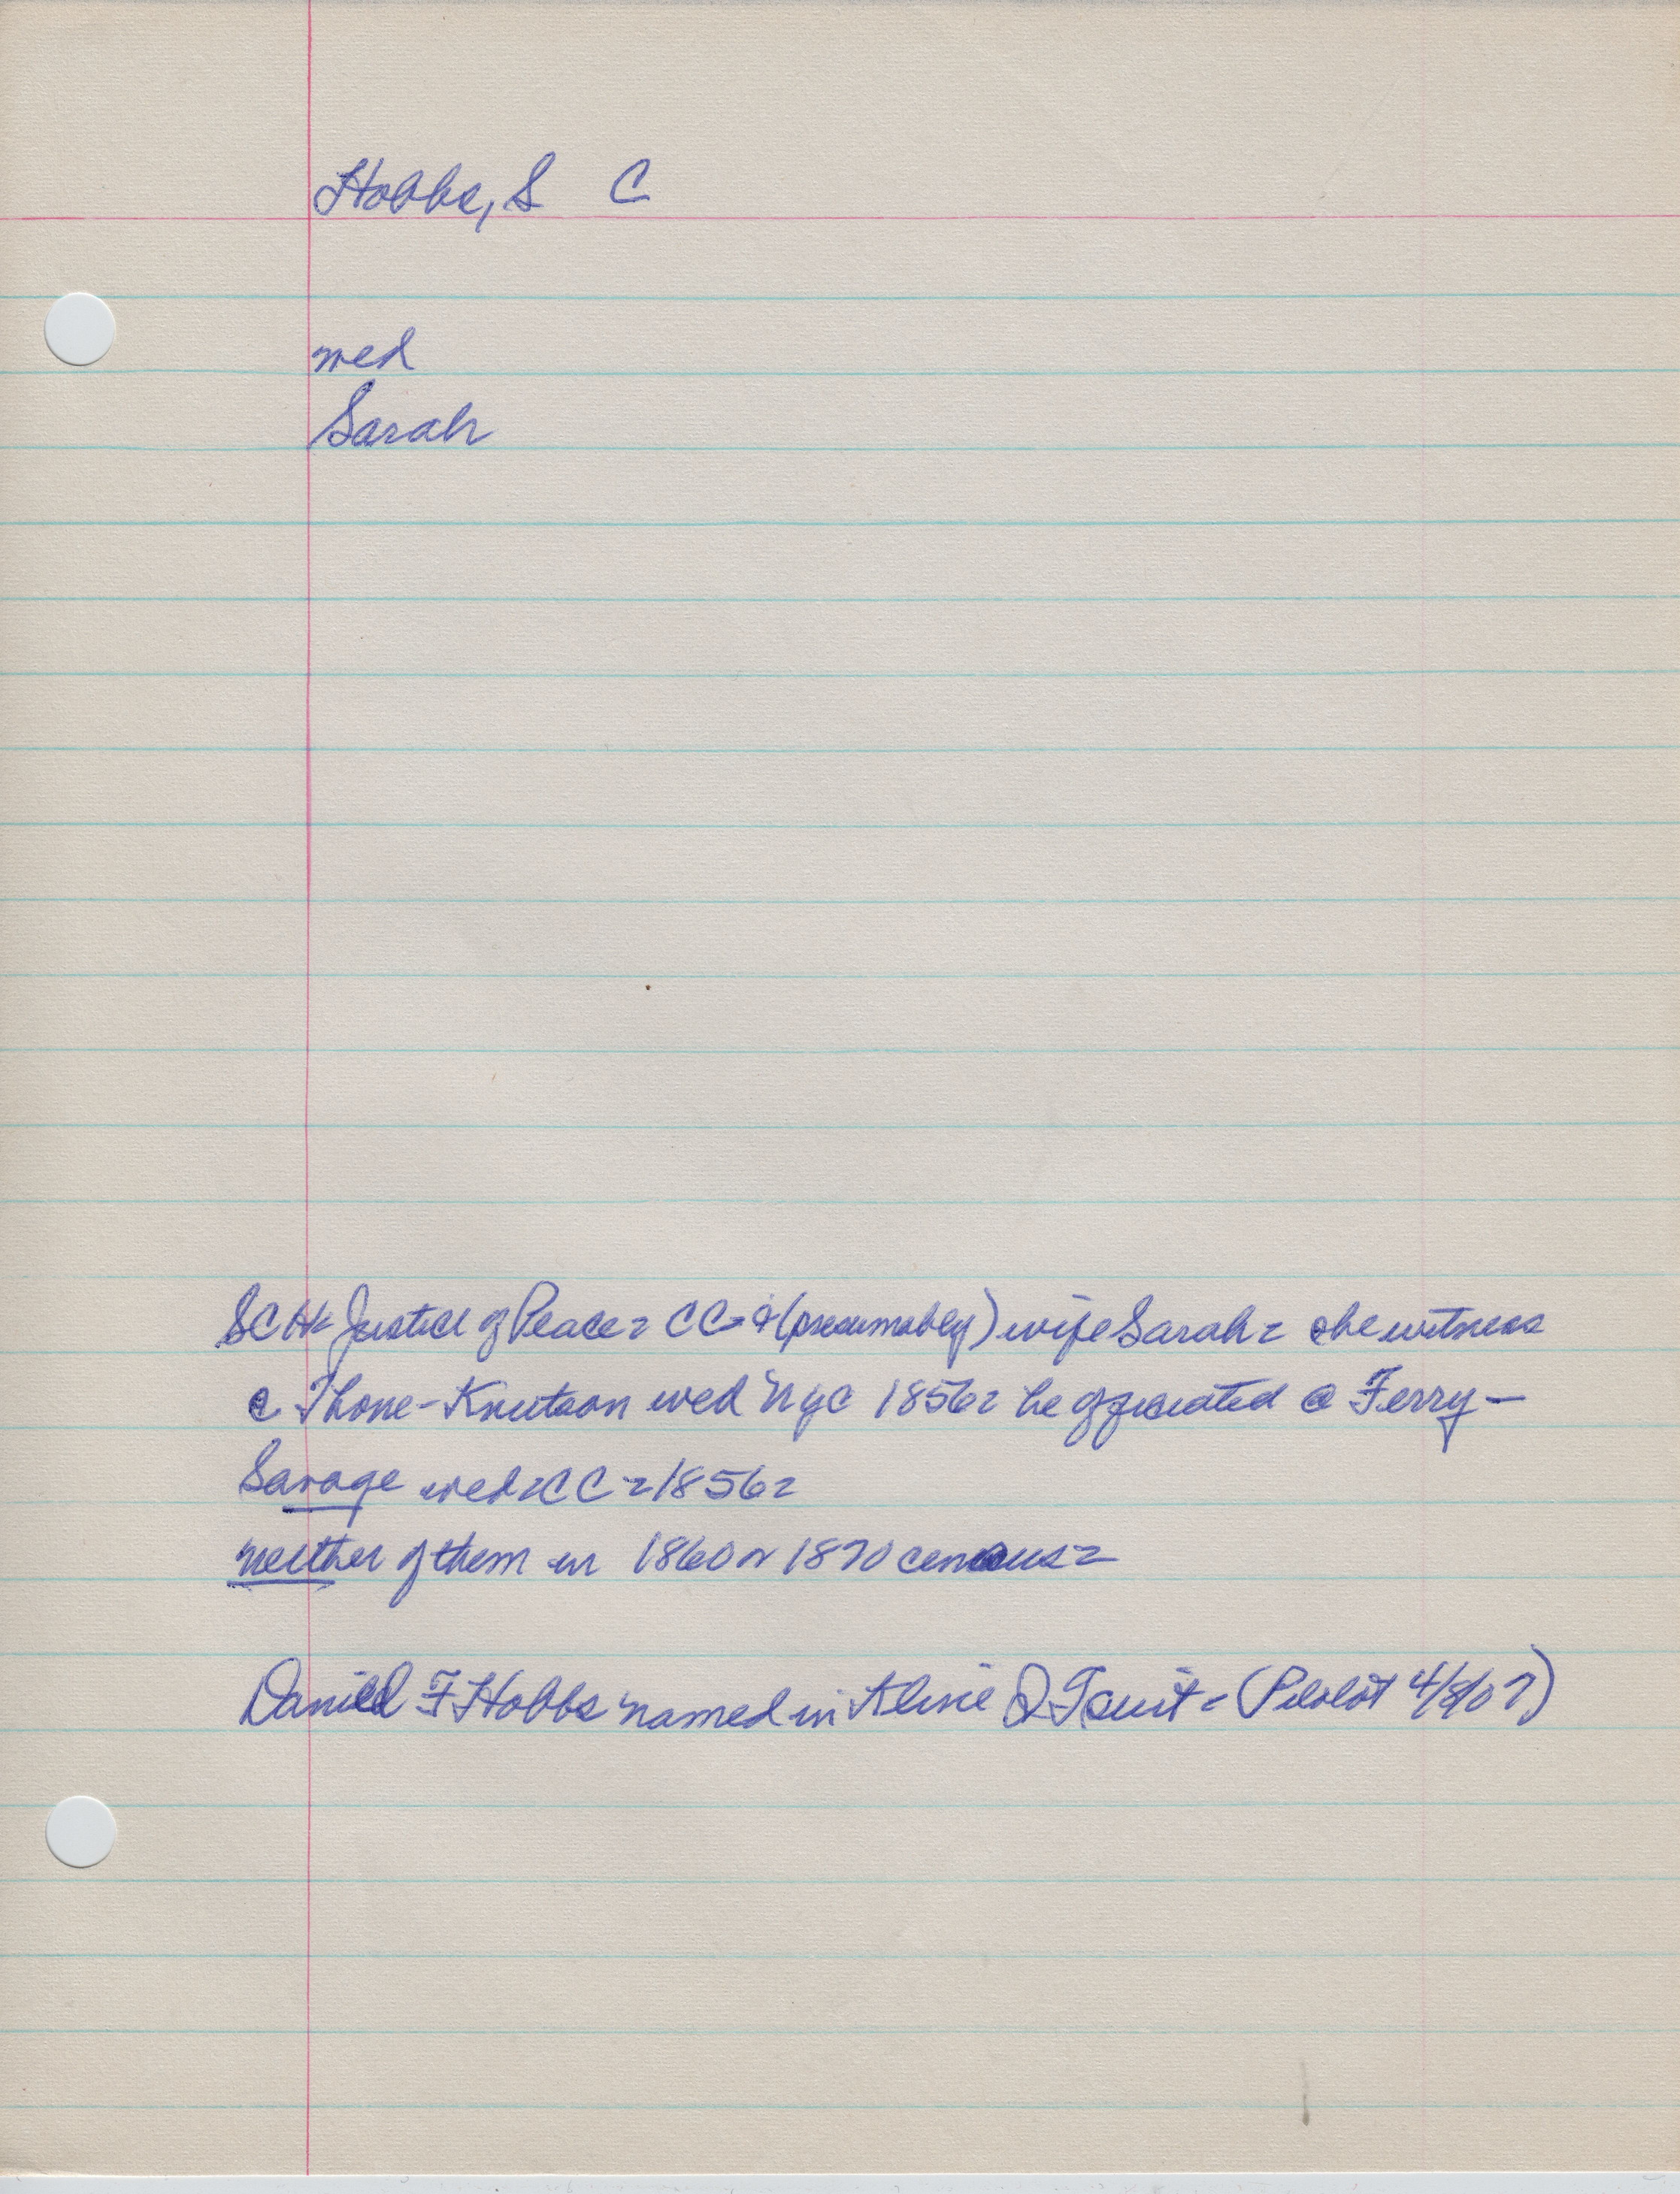 Hobbs, S C
wed
Sarah
SCH= Justice of Peace= CC= & (presumably) wife Sarah= she witness
@ Thone-Knutson wed NYC 1856= he officiated @ Ferry-
Savage wed= CC= 1856=
neither of them in 1860 or 1870 census=
Daniel F Hobbs named in Kline Q T suit= (Pilot 4/8/07)